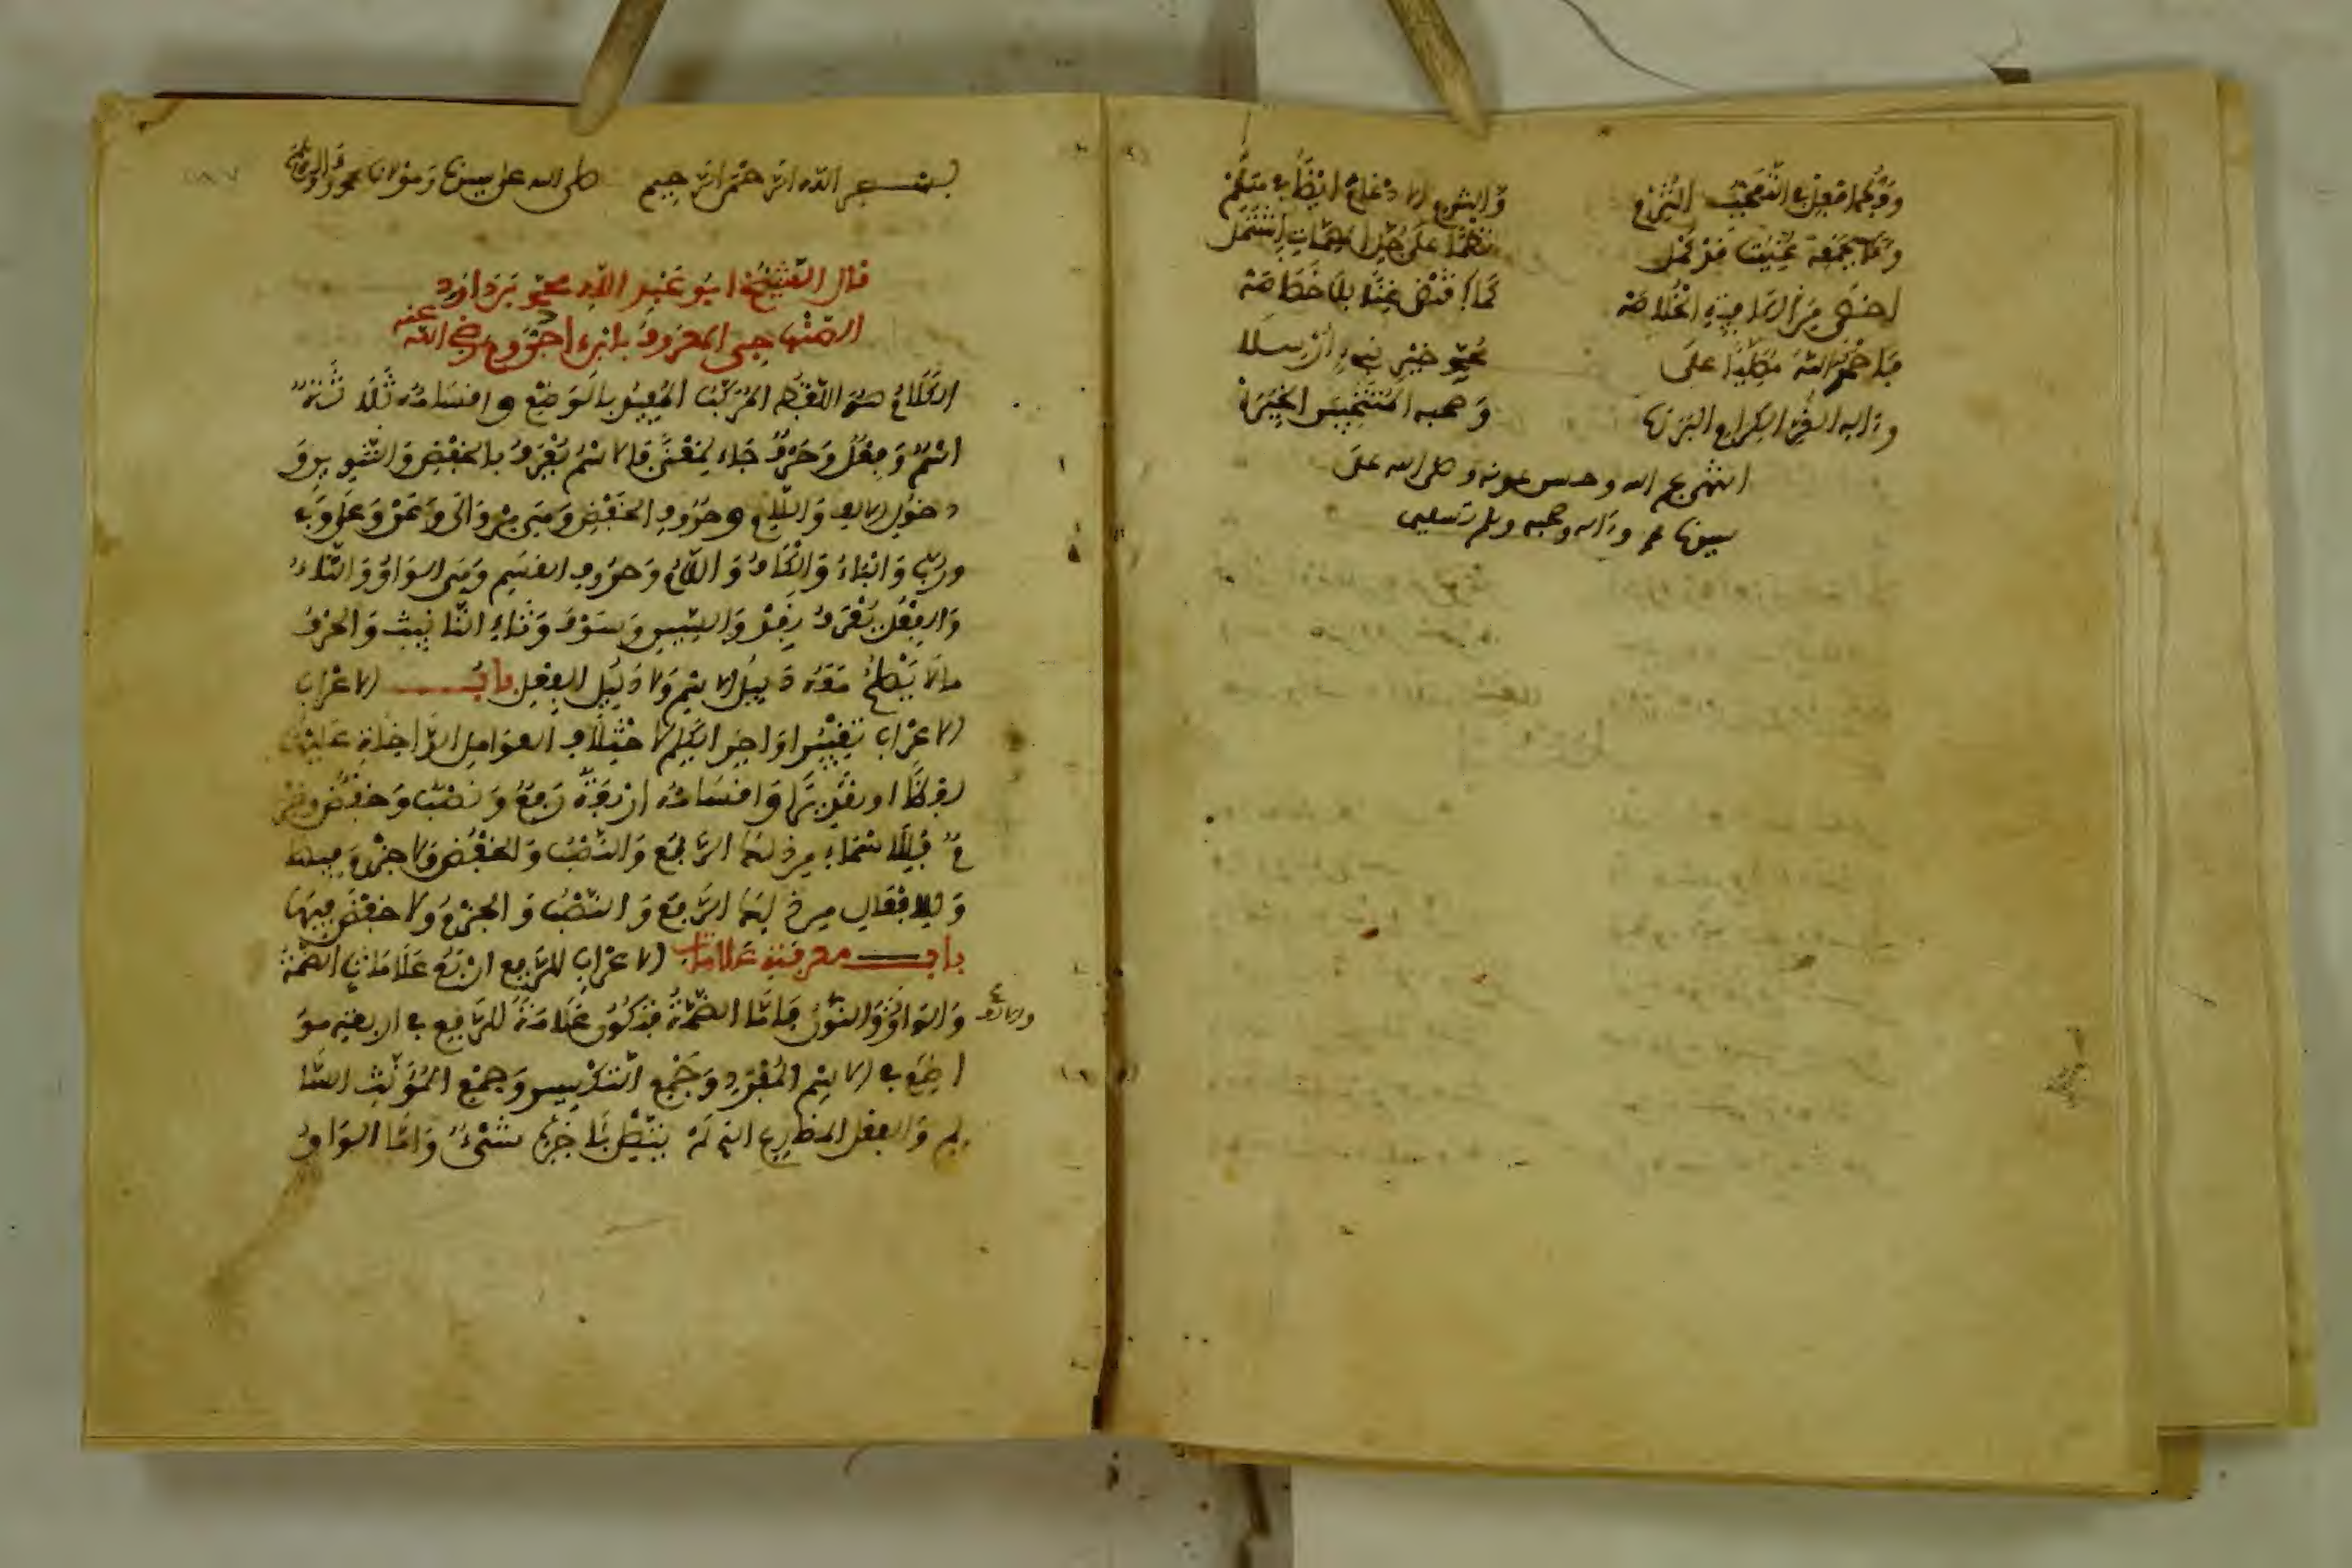 وَفَكُّ افْعِلْ فِي التَّعَجُّبِ الْتُزِمْ وَالْتُزِمَ الادْغَامُ ايْضًا فِي هَلُمْ
وَمَا بِجَمْعِهِ عُنِيتُ قَدْ كَمَلْ نَظْمًا عَلَى جُلِّ الْمُهِمَّاتِ اشْتَمَلْ
احْصَى مِنَ الْكَافِيَةِ الْخُلَاصَهْ كَمَا اقْتَضَى غِنًى بِلَا خَصَاصَهْ
فَاحْمَدُ اللَّهَ مُصَلِّيًا عَلَى مُحَمَّدٍ خَيْرِ نَبِيءٍ ارْسِلَا
وءَالِهِ الْغُرِّ الْكِرَامِ الْبَرَرَهْ وَصَحْبِهِ الْمُنْتَخَبِينَ الْخِيَرَهْ
انتهى بحمد الله وحسن عونه وصلى الله على
سيدنا محمد وءاله وصحبه وسلم تسليما
بسم الله الرحمن الرحيم صلى الله على سيدنا ومولانا محمد وءاله
قال الشَّيْخُ ابُو عَبْدِ اللَّهِ محمد بن دَاوُد
الصّنْهَاجِي المعْرُوفُ بابْنِ ءَاجَرُّومَ رضي اللَّه عنه
الْكَلَامُ هُوَ اللَّفْظُ الْمُرَكَّبُ الْمُفِيدُ بِالْوَضْعِ وافْسَامُهُ ثَلَاثَةٌ
اسْمٌ وَفِعْلٌ وَحَرْفٌ جَاءَ لِمَعْنًى فَالاسْمُ يُعْرَفُ بِالْخَفْضِ وَالتَّنْوِينِ وَ
دخُولِ الالفِ وَاللَّامِ وحُرُوفِ الْخَفْضِ وَهِيَ مِنْ وَالَى وَعَنْ وَعَلَى وَفِي
وَرُبَّ وَالْبَاءُ وَالْكَافُ وَاللَّامُ وَحُرُوفِ الْقَسَمِ وَهِيَ الْوَاوُ وَالتَّاءُ
وَالْفِعْلُ يُعْرَفُ بِقَدْ وَالسِّينِ وَسَوْفَ وَتَاءِ التَّانِيثِ وَالْحَرْفُ
مَا لَا يَصْلُحُ مَعَهُ دَلِيلُ الاسْمِ وَلَا دَلِيلُ الْفِعْلِ بابُ الاعْرَابِ
الاعْرَابُ تَغْيِيرُ اوَاخِرِ الْكَلِمِ لاخْتِلَافِ الْعَوَامِلِ الدَّاخِلَةِ عَلَيْهَا
لَفْظًا اوْ تَقْدِيرًا وَافْسَامُهُ ارْبَعَةٌ رَفْعٌ وَنَصْبٌ وَخَفْضٌ وَجَزْ
مٌ فَلِلَاسْمَاءِ مِن ذَلِكَ الرَّفْعُ وَالنَّصْبُ وَالْخَفْضُ وَلَا جَزْمَ فِيهَا
وَلِلافْعَالِ مِن ذَلِكَ الرَّفْعُ وَالنَّصْبُ وَالْجَزْمُ وَلَا خَفْضَ فِيهَا
بابُ معرفَةِ عَلَامَاتِ الاعْرَابِ لِلرَّفْعِ ارْبَعُ عَلَامَاتٍ الضَّمَّةُ
وَالْوَاوُ وَالنُّونُ فَامَّا الضَّمَّةُ فَتَكُونُ عَلَامَةً لِلرَّفْعِ فِي ارْبَعَةِ مَوَ
والالف
اضِعَ فِي الاسْمِ الْمُفْرَدِ وَجَمْعِ التَّكْسِيرِ وَجَمْعِ الْمُؤَنَّثِ السَّا
لِمِ وَالْفِعْلِ الْمُضَارِعِ الذِي لَمْ يَتَّصِلْ بِآخِرِهِ شَيْءٌ وَامَّا الْوَاوُ